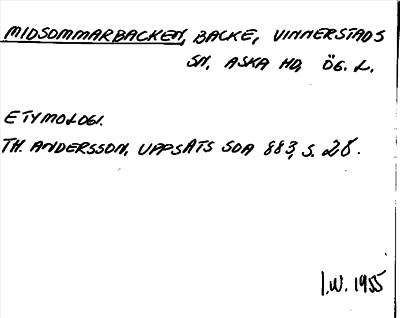 MIDSOMMARBACKEN, BACKE, VINNERSTADS
SN. ASKA HD, ÖG. L.
ETYMOLOGI.
TH. ANDERSSON. UPPSATS SOA 883, S. 28.
I.W. 1955